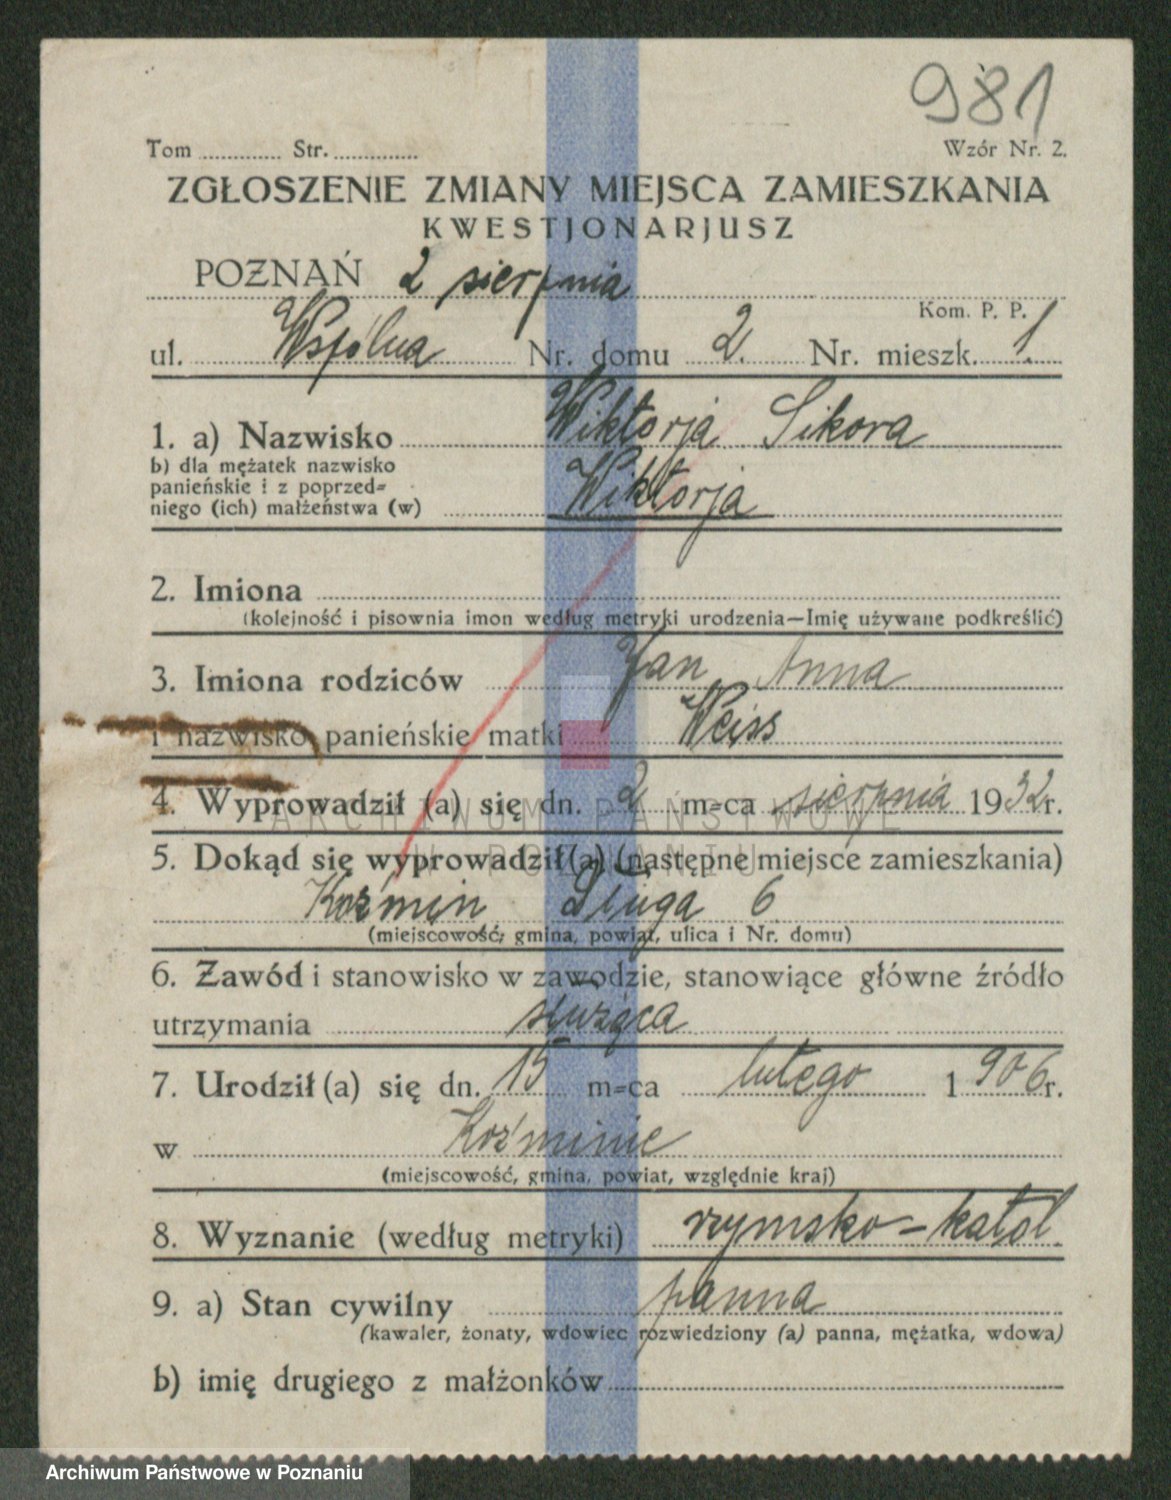 981
Tom ............ Str. ............
Wzór Nr. 2.
ZGŁOSZENIE ZMIANY MIEJSCA ZAMIESZKANIA
KWESTJONARJUSZ
POZNAŃ 2 sierpnia
Kom. P. P.
ul. Wspólna Nr. domu 2. Nr. mieszk. 1.
1. a) Nazwisko Wiktorja Sikora
b) dla mężatek nazwisko
panieńskie i z poprzed=
niego (ich) małżeństwa (w) Wiktorja
2. Imiona
(kolejność i pisownia imon według metryki urodzenia—Imię używane podkreślić)
3. Imiona rodziców Jan Anna
i nazwisko panieńskie matki Weiss
4. Wyprowadził (a) się dn. 2 m=ca sierpnia 1932r.
ARCHIWUM PAŃSTWOWE
W POZNANIU
5. Dokąd się wyprowadził(a) (następne miejsce zamieszkania)
Koźmin Długa 6
(miejscowość, gmina, powiat, ulica i Nr. domu)
6. Zawód i stanowisko w zawodzie, stanowiące główne źródło
utrzymania służąca
7. Urodził (a) się dn. 15 m=ca lutego 1906r.
w Koźminie
(miejscowość, gmina, powiat, względnie kraj)
8. Wyznanie (według metryki) rzymsko-katol
9. a) Stan cywilny panna
(kawaler, żonaty, wdowiec rozwiedziony (a) panna, mężatka, wdowa)
b) imię drugiego z małżonków
Archiwum Państwowe w Poznaniu